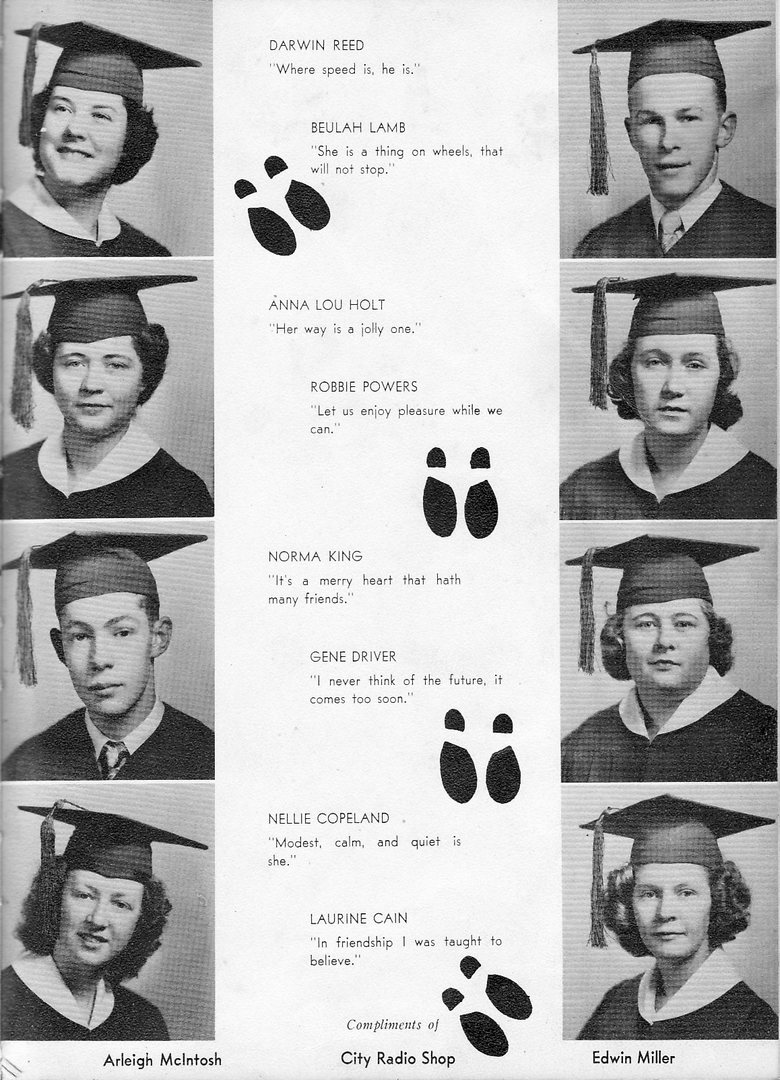 DARWIN REED
"Where speed is, he is."
BEULAH LAMB
"She is a thing on wheels, that
will not stop."
ANNA LOU HOLT
"Her way is a jolly one."
ROBBIE POWERS
"Let us enjoy pleasure while we
can."
NORMA KING
"It's a merry heart that hath
many friends."
GENE DRIVER
"I never think of the future, it
comes too soon."
NELLIE COPELAND
"Modest, calm, and quiet is
she."
LAURINE CAIN
"In friendship I was taught to
believe."
Compliments of
Arleigh McIntosh City Radio Shop Edwin Miller